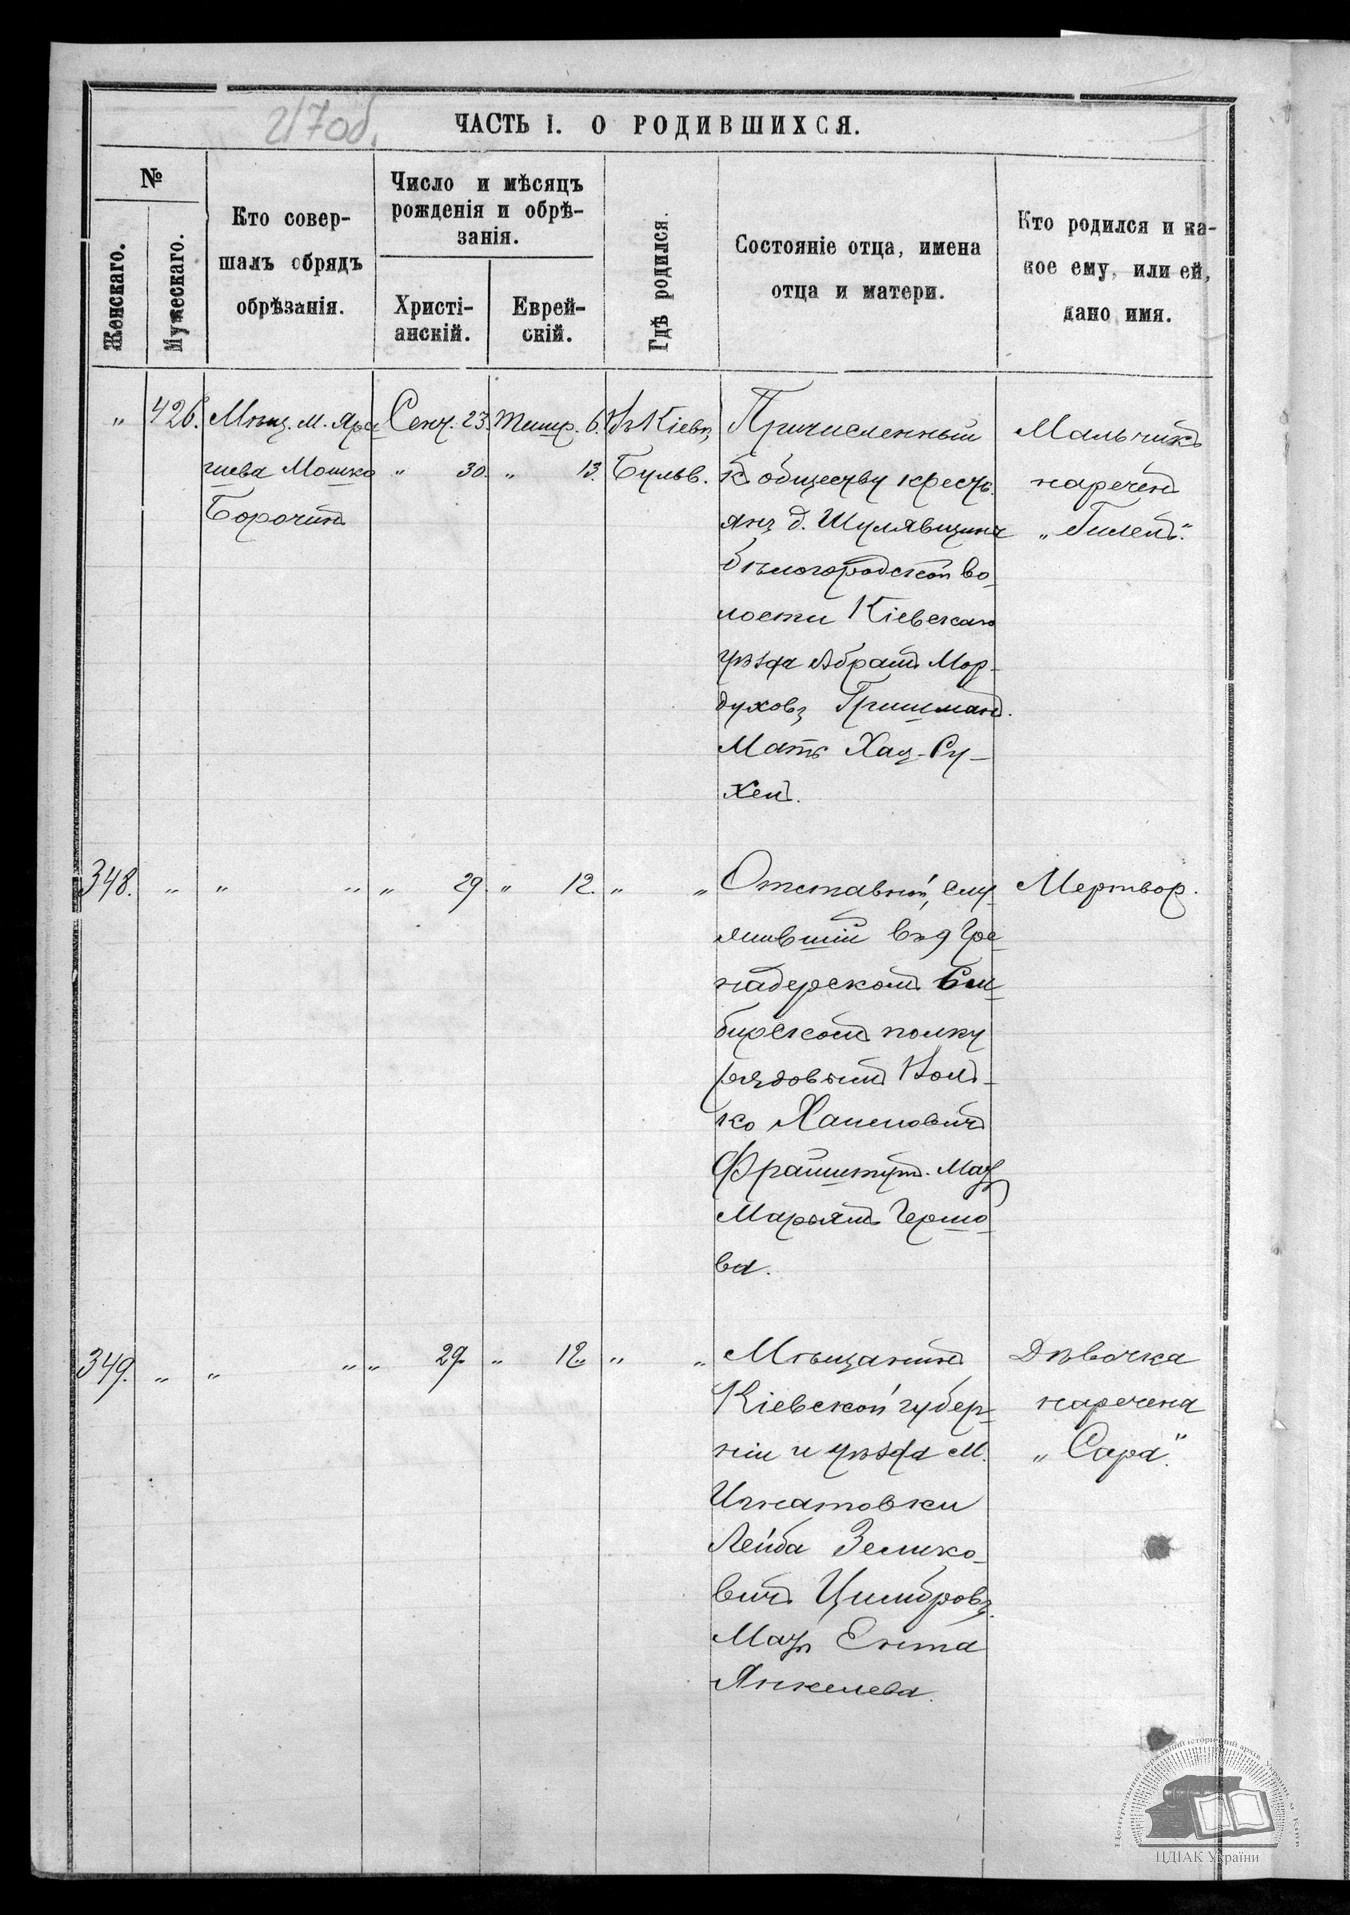 217об.
ЧАСТЬ I. О РОДИВШИХСЯ.
№
Женскаго.
Мужескаго.
Кто совер-
шалъ обрядъ
обрѣзанія.
Число и мѣсяцъ
рожденія и обрѣ-
занія.
Христі-
анскій.
Еврей-
скій.
Гдѣ родился.
Состояніе отца, имена
отца и матери.
Кто родился и ка-
кое ему, или ей,
дано имя.
„ 426. Мѣщ. м. Сент. 23. Тишр. 6. Въ Кіевѣ,
Мошко „ 30. „ 13. Бульв.
Причисленный
къ обществу кресть-
янъ д. Шулявщины
бѣлогородской во-
лости Кіевскаго
уѣзда Абрамъ Мор-
духовъ Гришманъ.
Мать Хая-Ру-
хел.
Мальчикъ
нареченъ
348. „ „ „ „ 29. „ 12. „ „
Отставной, слу-
жившій въ 9 Гре-
надерскомъ Си-
бирскомъ полку
рядовымъ Вол-
ко Хаимовичъ
Мать
Марьямъ Гершо-
ва.
Мертвор.
349. „ „ „ „ 29. „ 12. „ „
Мѣщанинъ
Кіевской губер-
ніи и уѣзда м.
Игнатовки
Лейба Зелико-
вичъ Цимбровъ.
Мать Ента
Янкелева.
Дѣвочка
наречена
„Сара".
Центральний державний історичний архів України, м. Київ
ЦДІАК України